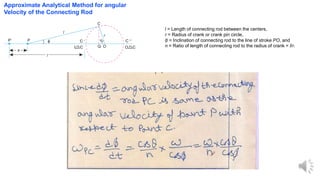 Approximate Analytical Method for angular
Velocity of the Connecting Rod
l = Length of connecting rod between the centers,
r = Radius of crank or crank pin circle,
ϕ = Inclination of connecting rod to the line of stroke PO, and
n = Ratio of length of connecting rod to the radius of crank = l/r.
C
l
r
P'
P
ϕ
θ
Q
O
I.D.C
O.D.C
x
Since dϕ/dt = angular velocity of the connecting
rod PC is same as the
angular velocity of point P with
respect to point C.
ω_PC = dϕ/dt = cosθ/n × ω/cosϕ = ω/n × cosθ/cosϕ